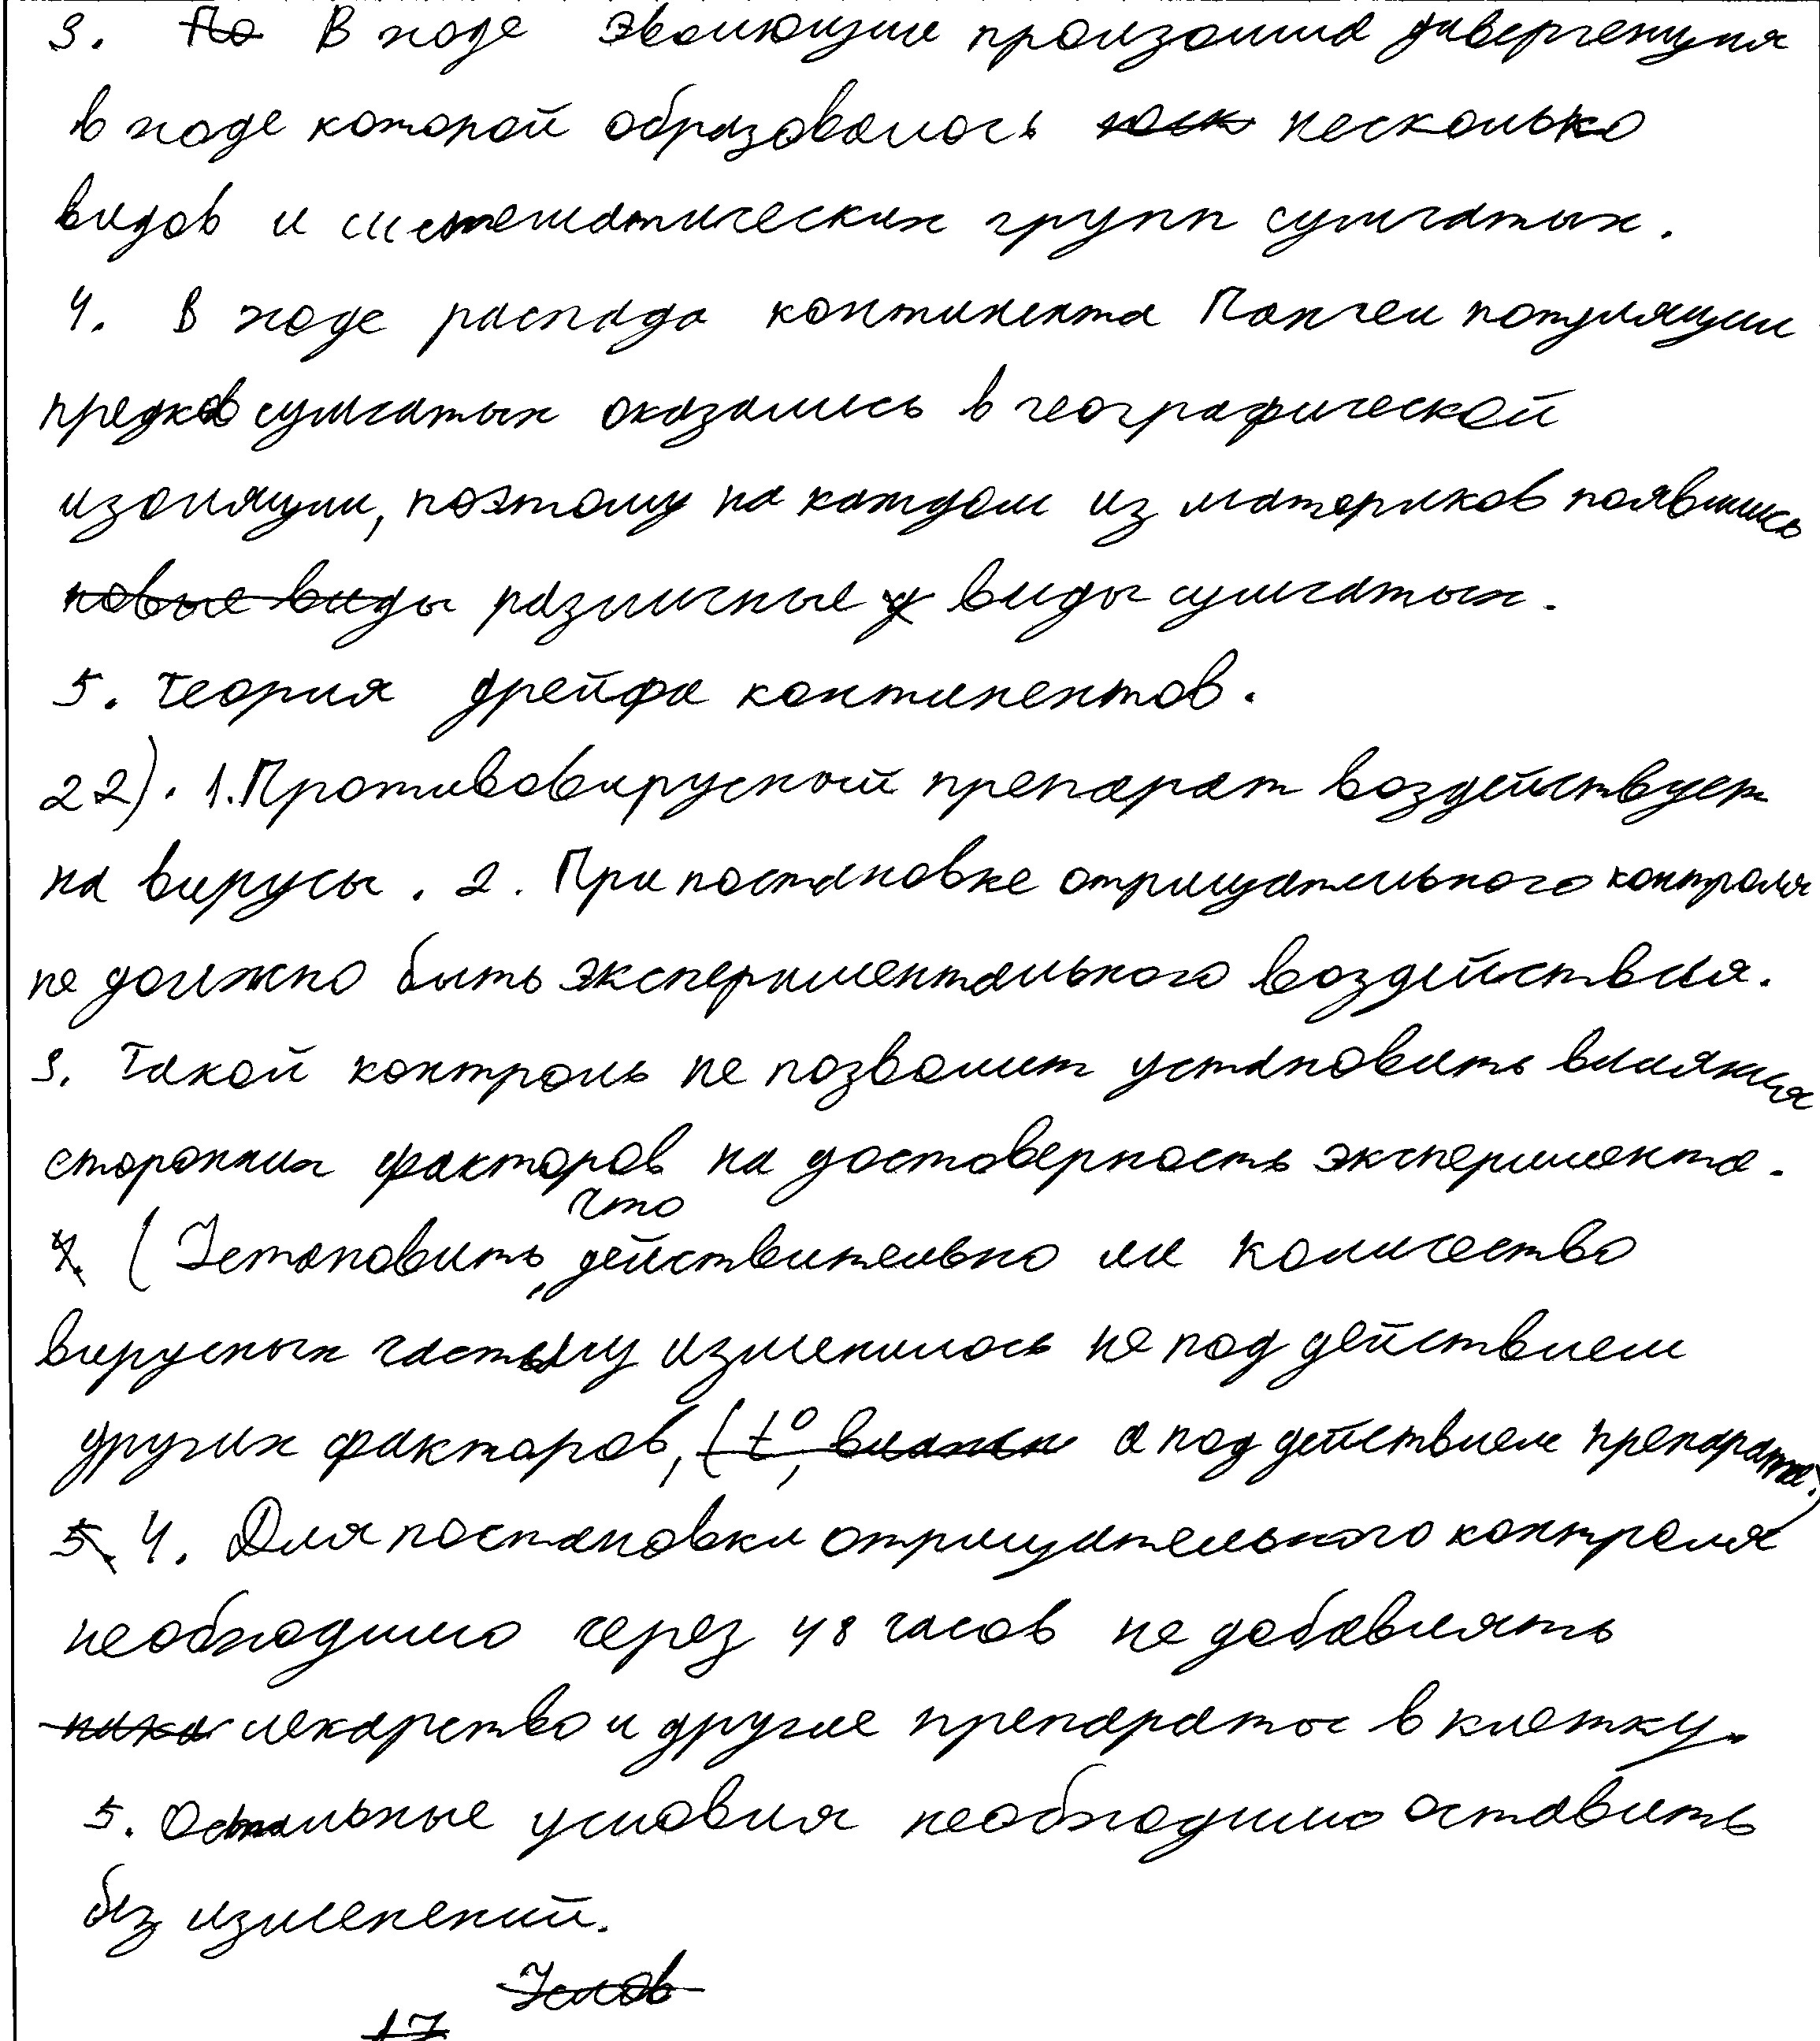 3. По В ходе эволюции произошла дивергенция
в ходе которой образовалось несколько
видов и систематических групп сумчатых.
4. В ходе распада континента Пангеи популяции
предков сумчатых оказались в географической
изоляции, поэтому на каждом из материков появились
новые виды различные у виды сумчатых.
5. Теория дрейфа континентов.
22). 1. Противовирусный препарат воздействует
на вирусы. 2. При постановке отрицательного контроля
не должно быть экспериментального воздействия.
3. Такой контроль не позволит установить влияния
сторонних факторов на достоверность эксперимента.
что
4. (Установить, действительно ли количество
вирусных частиц изменилось не под действием
других факторов, (t°, влажн а под действием препарата.)
5. 4. Для постановки отрицательного контроля
необходимо через 48 часов не добавлять
лекарство и другие препараты в клетку.
5. Остальные условия необходимо оставить
без изменений.
Услов
17